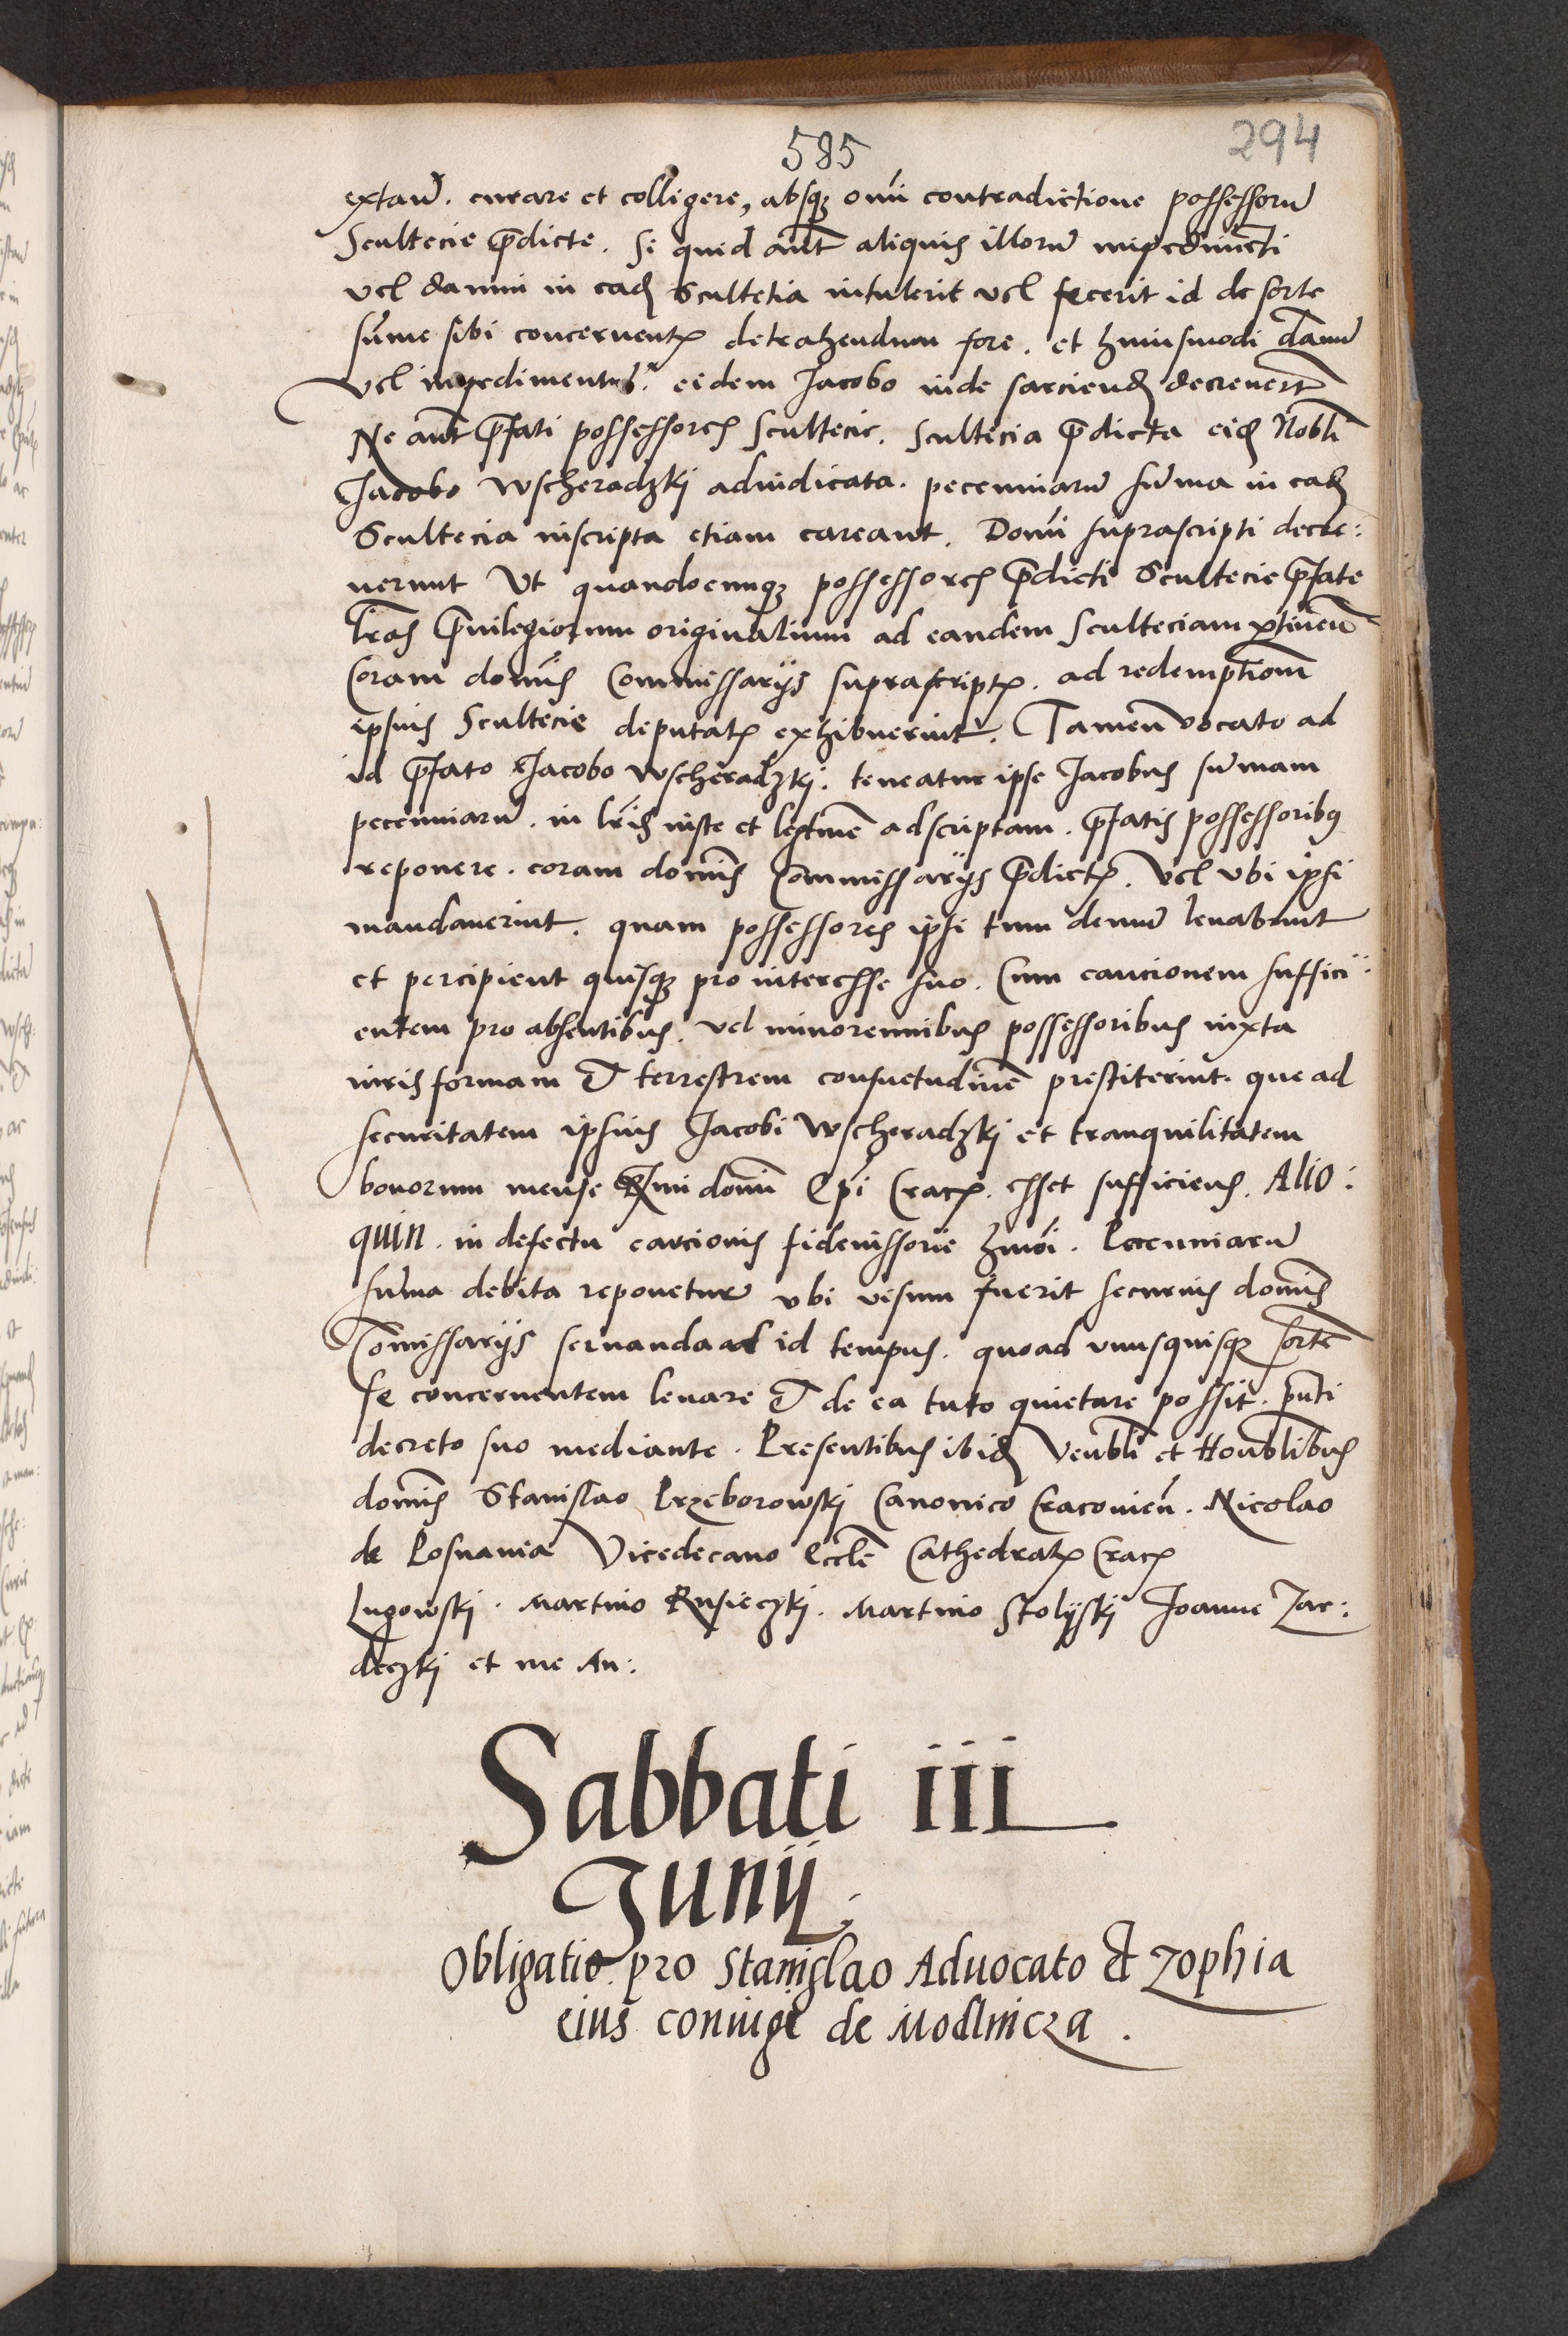 585
294
extań. curare et colligere, absq̃ om̃i contradictione possessorũ
Scultecie p̃dicte. Si quid aũt aliquis illorũ impedimẽti
vel damni in eadẽ Scultetia intulerit vel fecerit id de sorte
sum̃e sibi concernentẽ detrahendum fore. et huiusmodi dañũ
vel impedimentũ. eidem Jacobo inde sarciendũ decreuerũt
Ne aũt p̃fati possessores scultecie. Scultecia p̃dicta eidẽ Nobli
Jacobo wscheradzkj adiudicata. pecuniarũ sum̃a in eadẽ
Scultecia inscripta etiam careant. Domi suprascripti decre:
uerunt Ut quandocunq̃ possessores p̃dicti Scultecie p̃fate
lr̃as p̃uilegiorum originalium ad eandem Sculteciam ptineñ
Coram dom̃is Commissarijs suprascriptis. ad redemptiom̃
ipsius Scultecie deputatis exhibuerint. Tamen vocato ad
id p̃fato Jacobo wscheradzkj. teneatur ipse Jacobus sum̃am
pecuniarũ. in lr̃is iuste et legtimẽ adscriptam. p̃fatis possessoribus
reponere. coram dom̃is Commissarijs p̃dictis. Vel vbi ipsi
mandauerint. quam possessores ipsi tum demũ leuabunt
et percipient quisq̃ pro interesse suo. Cum caucionem suffici:
entem pro absentibus. vel minorennibus possessoribus iuxta
iuris formam & terrestrem consuetudinẽ prestiterint. que ad
securitatem ipsius Jacobi wscheradzkj et tranquilitatem
bonorum mense R̃mi domĩ Ep̃i Crac̃. esset sufficiens. Alio:
quin. in defectu caucionis fideiussorie hmõi. Pecuniarũ
sum̃a debita reponetur vbi visum fuerit securius dom̃is
Com̃issarijs seruanda ad id tempus. quoad vnusquisq̃ sortẽ
se concernentem leuare & de ea tuto quietare possit. p̃nti
decreto suo mediante. Presentibus ibidẽ Veñbli et Hoñblibus
dom̃is Stanislao Przeborowskj Canonico Cracovieñ. Nicolao
de Posnania Vicedecano Eccl̃e Cathedralis Crac̃
Lugowskj. Martino Rusieczkj. Martino Stolyskj Joanne Zar:
deczkj et me An:
Sabbati iii
Junij.
Obligatio pro Stanislao Aduocato & Zophia
eius coniuge de Modlnicza.